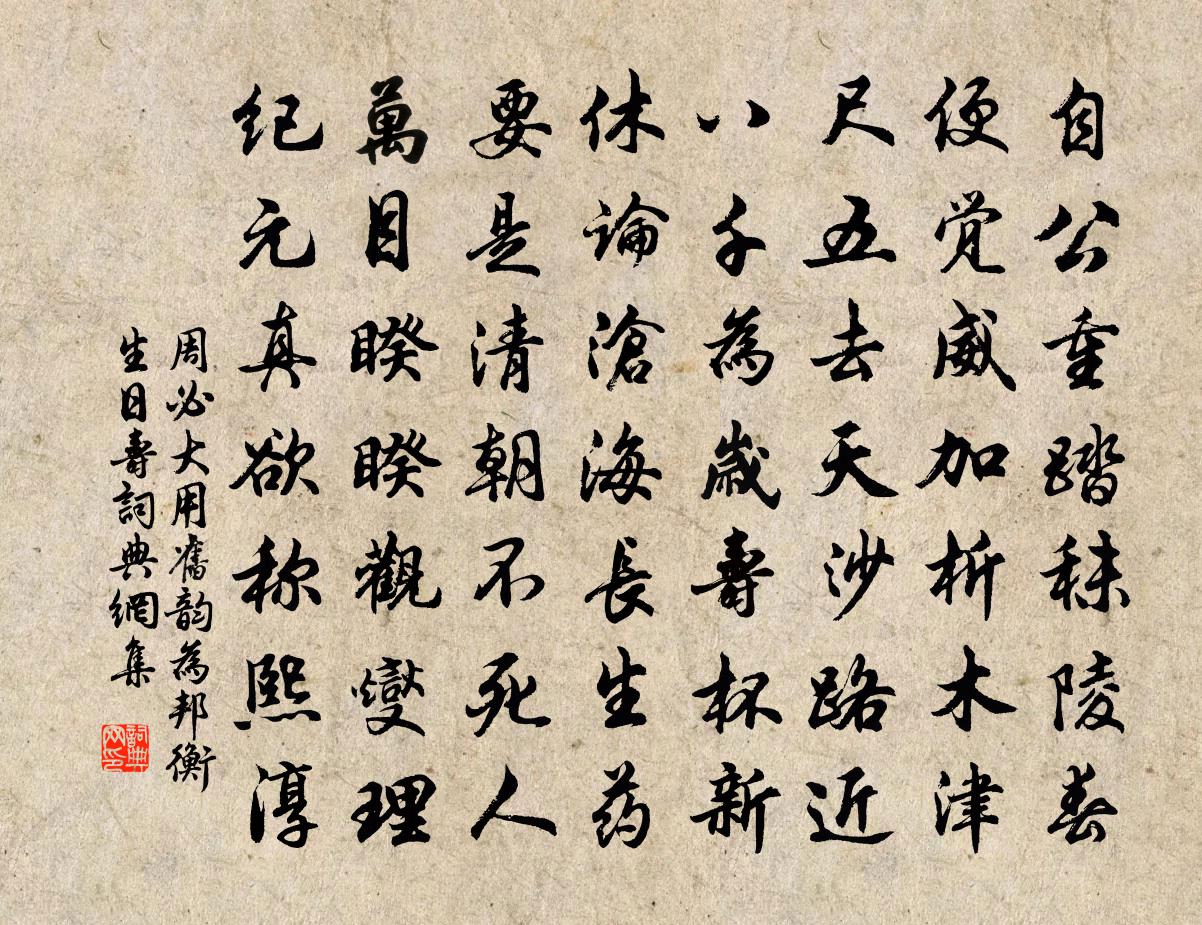 自公重踏秣陵春
便觉威加析木津
尺五去天沙路近
八千為歲壽杯新
休論滄海長生药
要是清朝不死人
萬目睽睽觀燮理
纪元真欲称熙淳
周必大用舊韵為邦衡
生日壽詞典網集
詞典
网印